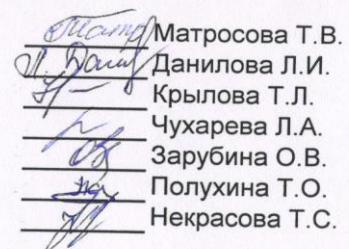 Матросова Т.В.
Данилова Л.И.
Крылова Т.Л.
Чухарева Л.А.
Зарубина О.В.
Полухина Т.О.
Некрасова Т.С.